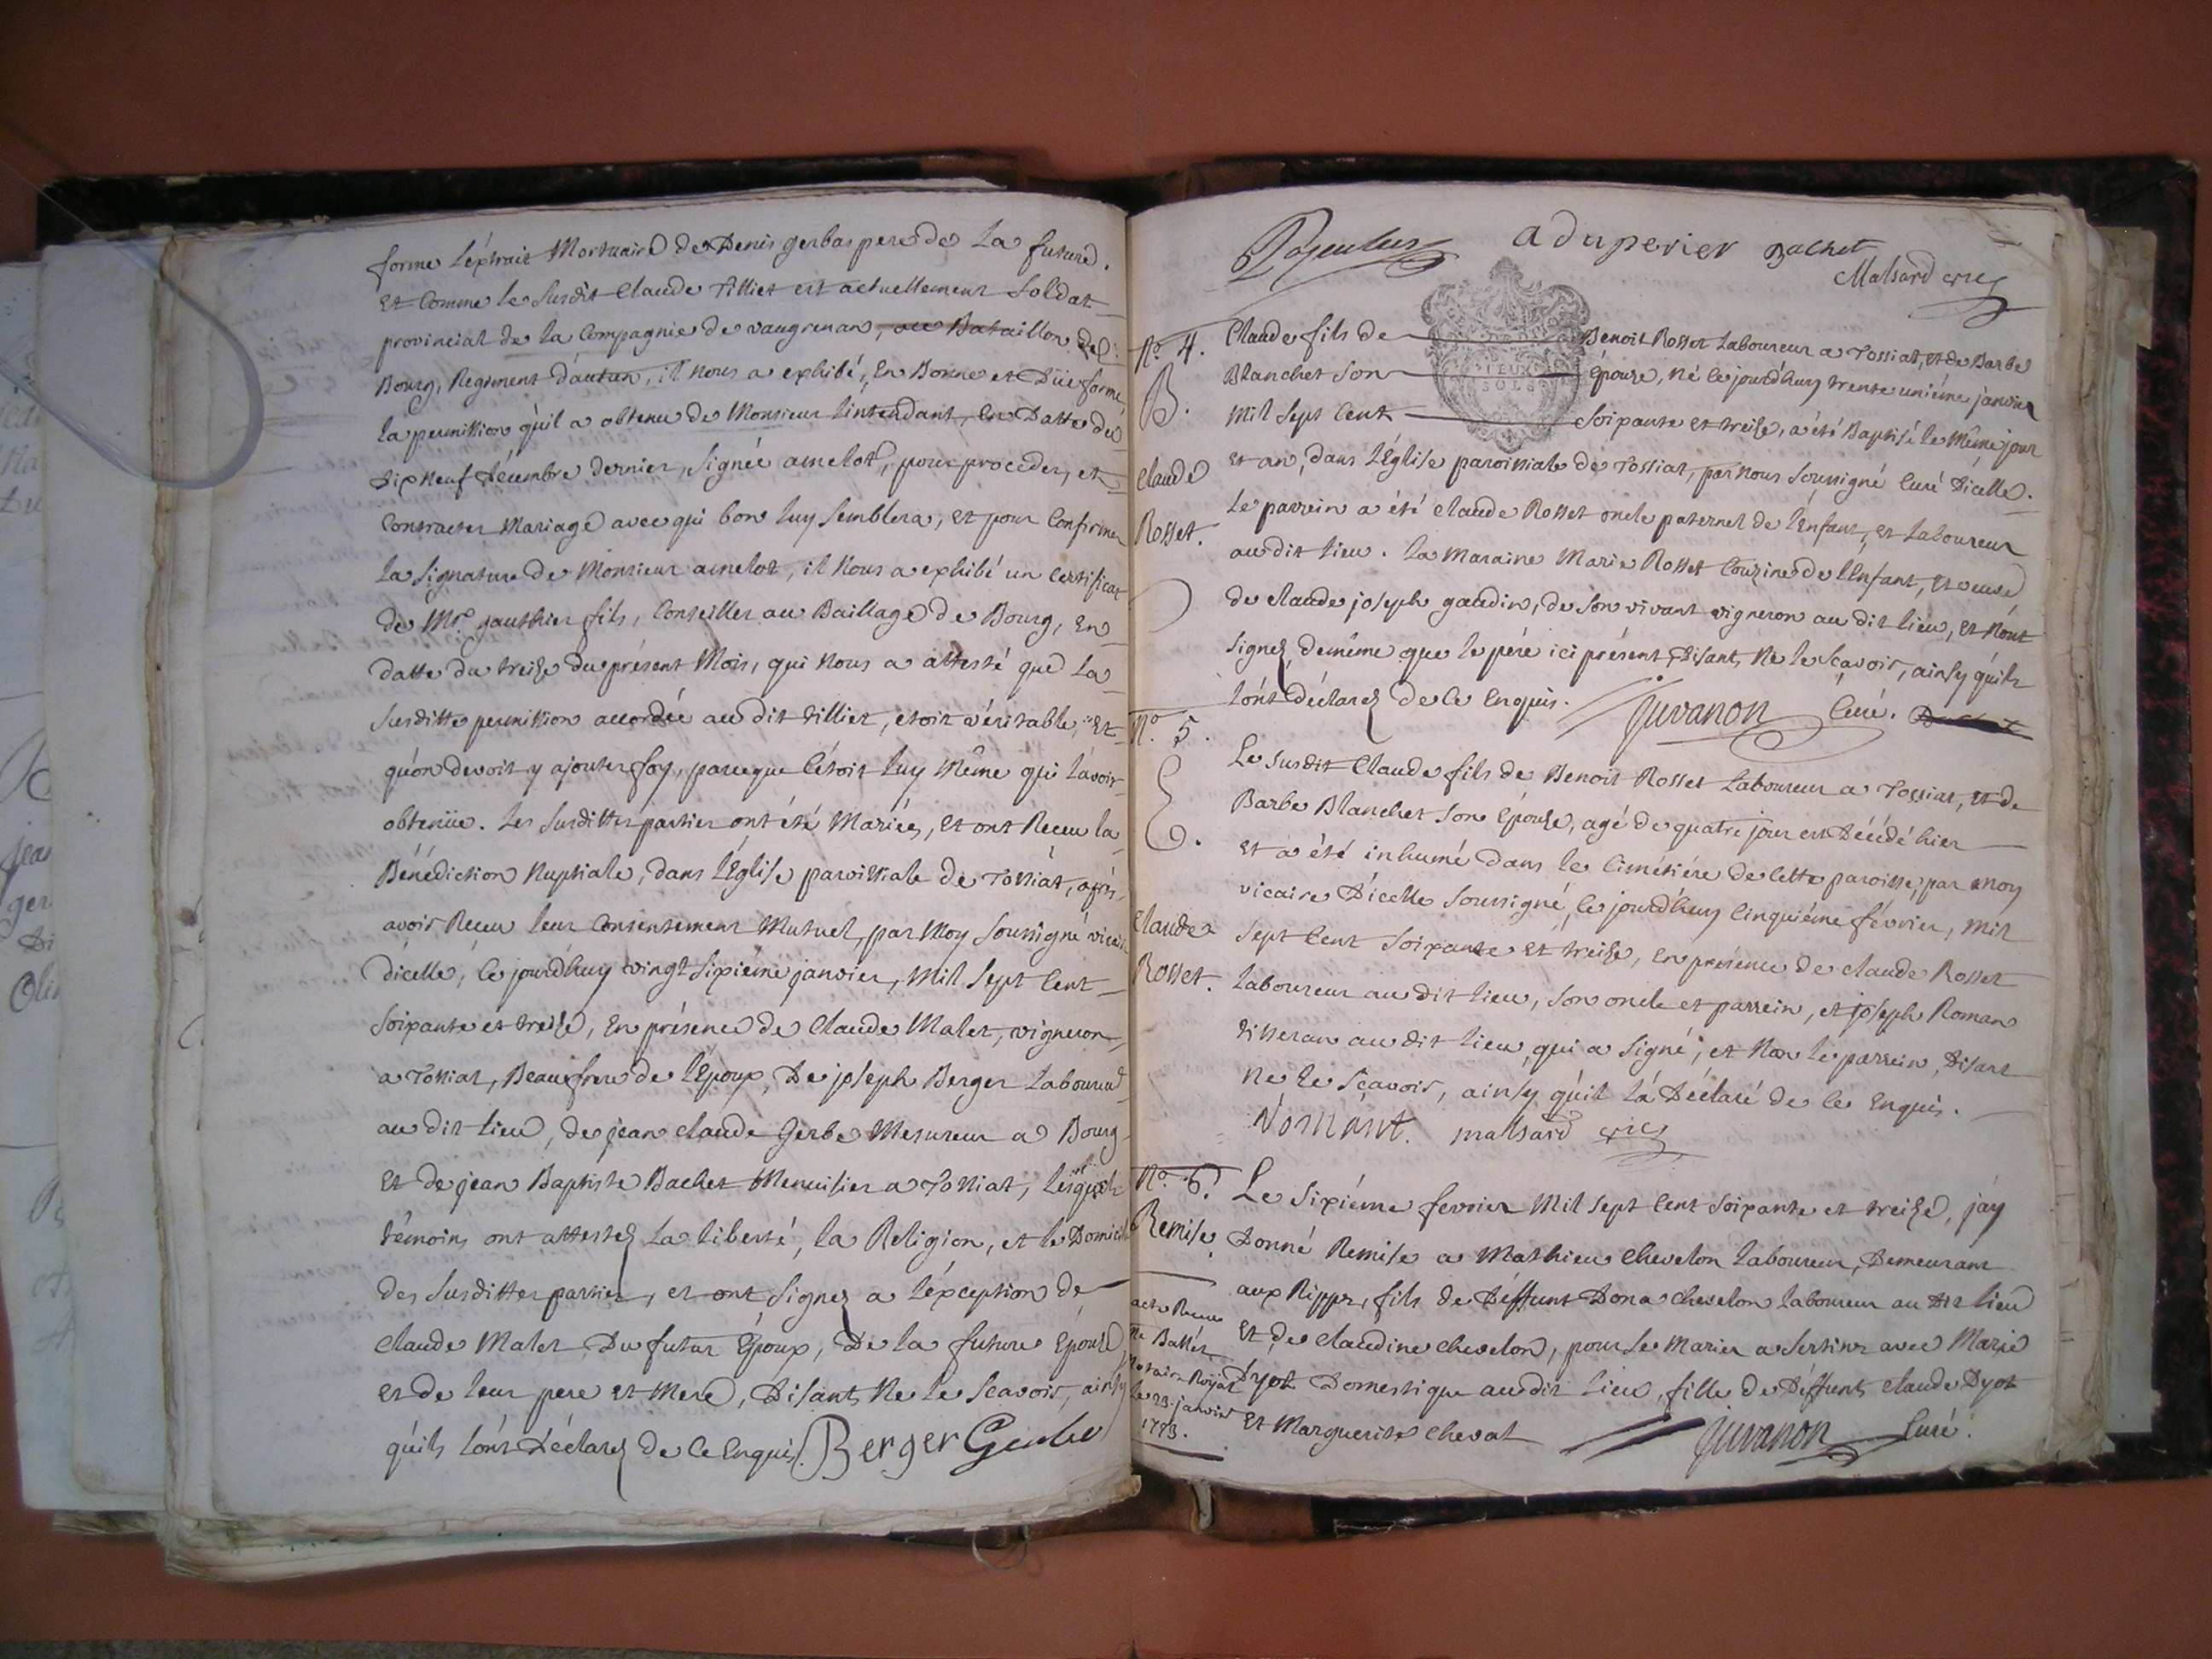 forme L'éxtrait Mortuaire de Denis gerbas pere de La future.
Et Comme le Susdit Claude Tilliet est actuellement Soldat
provincial de la Compagnie de vaugrenan, au Bataillon de
Bourg, Regiment d'autun, il nous a exhibé, En Bonne et Düe forme
la permission qu'il a obtenu de Monsieur l'intendant, En Datte du
Dix Neuf Décembre Dernier, Signée amelot, pour proceder, et
Contracter Mariage avec qui bon luy Semblera, et pour Confirmer
La Signature de Monsieur amelot, il Nous a exhibé un Certificat
de Mr. gauthier fils, Conseiller au Baillage de Bourg, En
datte du treize du présent Mois, qui Nous a attesté que La
Susditte permission accordée au dit tilliet, étoit véritable, Et
qu'on devoit y ajouter foy, parceque C'étoit luy Même qui l'avoit
obtenüe. Les Susdittes parties ont été Mariées, Et ont Reçeu la
Bénédiction Nuptiale, dans l'Eglise paroissiale de Tossiat, après
avoir Reçeu leur Consentement Mutuel, par Moy Soussigné vicaire
D'icelle, Ce jourd'huy vingt Sixiéme janvier, Mil Sept Cent
Soixante et treize, En présence de Claude Malet, vigneron
a Tossiat, Beaufrere de l'Epoux, De joseph Berger Laboureur
au dit Lieu, de jean claude Gerbe Mesureur a Bourg
Et de jean Baptiste Bachet Menuisier a Tossiat, Lesquels
témoins ont attestez La liberté, la Religion, et le Domicile
des Susdittes parties, et ont Signez a l'éxception de
Claude Malet Du futur Epoux, De la future Epouse
et de leur pere et Mere, Disant Ne le Scavoir, ainsy
qu'ils l'ont Déclarez de Ce Enquis. Berger Gerbe
aduperier Bachet
Malsard vic
No. 4.
B.
Claude
Rosset.
Claude fils de Benoit Rosset Laboureur a Tossiat, et de Barbe
Blanchet Son Épouze, né ce jourd'huy trente uniéme janvier
Mil Sept Cent Soixante et treize, a été Baptisé le Même jour
et an, dans L'Église paroissiale de Tossiat, par Nous Soussigné Curé D'icelle.
Le parrein a été Claude Rosset oncle paternel de l'Enfant, et Laboureur
au dit lieu. La Maraine Marie Rosset Couzine de l'Enfant, et veuve
de claude joseph gaudin, de Son vivant vigneron au dit lieu, et N'ont
Signez, de même que le péré ici présent, Disant Ne le Scavoir, ainsy qu'ils
l'ont déclarez de Ce Enquis. Juvanon Curé.
No. 5.
Claude
Rosset.
Le Susdit Claude fils de Benoit Rosset Laboureur a Tossiat, et de
Barbe Blanchet Son Epouze, agé de quatre jour est Décédé hier
et a été inhumé dans le Cimétiére de Cette paroisse, par Moy
vicaire D'icelle Soussigné, Ce jourd'huy Cinquiéme février, Mil
Sept Cent Soixante et treize, En présence de claude Rosset
Laboureur au dit lieu, Son oncle et parrein, et joseph Roman
tisseran au dit lieu, qui a Signé, et Non le parrein, Disant
Ne le Scavoir, ainsy qu'il l'a Déclaré de Ce Enquis.
malsard vic
No. 6.
Remise
acte Receu
Me Ballet
Notaire Royal
le 23. janvier
1773.
Le Sixiéme fevrier Mil Sept Cent Soixante et treize, j'ay
Donné Remise a Mathieu Chevelon Laboureur, Demeurant
aux Rippes, fils de Déffunt Dona Chevelon Laboureur au dit lieu
Et de Claudine Chevelon, pour Se Marier a Sertines avec Marie
Dyot Domestique au dit lieu, fille de Déffunts claude Dyot
et Marguerite Chevat Juvanon Curé.